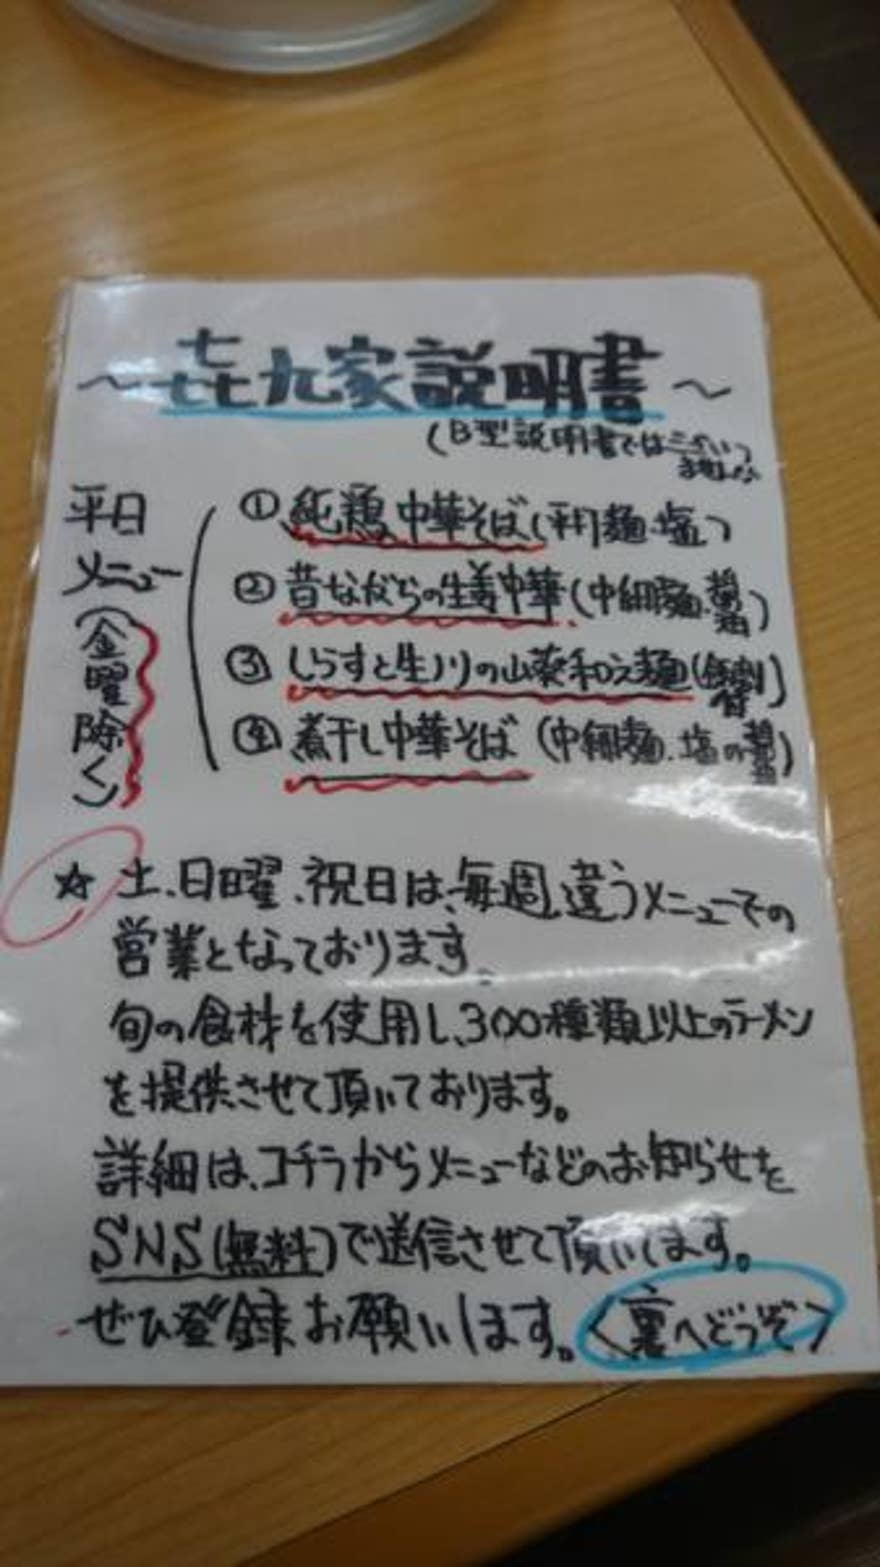 ～㐂九家説明書～
(B型説明書ではございませんが)
平日
メニュー
(金曜除く)
① 純鶏中華そば(平打麺.塩)
② 昔ながらの生姜中華(中細麺.醤油)
③ しらすと生ノリの山葵和え麺(付)
④ 煮干し中華そば(中細麺.塩or醤油)
☆ 土、日曜、祝日は、毎週、違うメニューでの
営業となっております。
旬の食材を使用し、300種類以上のラーメン
を提供させて頂いております。
詳細は、コチラからメニューなどのお知らせを
SNS(無料)で送信させて頂いてます。
ぜひ登録お願いします。<裏へどうぞ>